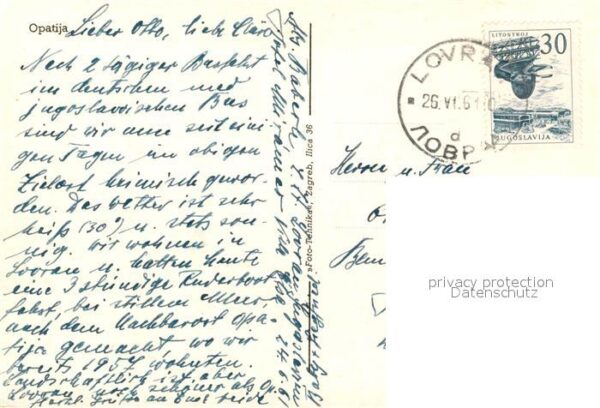 Opatija
Lieber Otto, liebe Cläre
Nach 2 tägiger Busfahrt
im deutschen und
jugoslawischen Bus
sind wir nun seit eini
gen Tagen im obigen
Zielort heimisch gewor-
den. Das Wetter ist sehr
heiß (30°) u. stets son-
nig. Wir wohnen in
Lovran u. hatten heute
eine 3 stündige Ruderboot
fahrt, bei stillem Meer,
nach dem Nachbarort Opa-
tija gemacht wo wir
bereits 1957 wohnten.
Landschaftlich ist aber
Lovran noch schöner als Op.
Herzl. Grüße an Euch beide
24.6.61
»Foto-Tehnika«, Zagreb, Ilica 36
LOVRAN
26.VI.61
a
ЛОВРАН
LITOSTROJ
30
JUGOSLAVIJA
Herrn u. Frau
privacy protection
Datenschutz